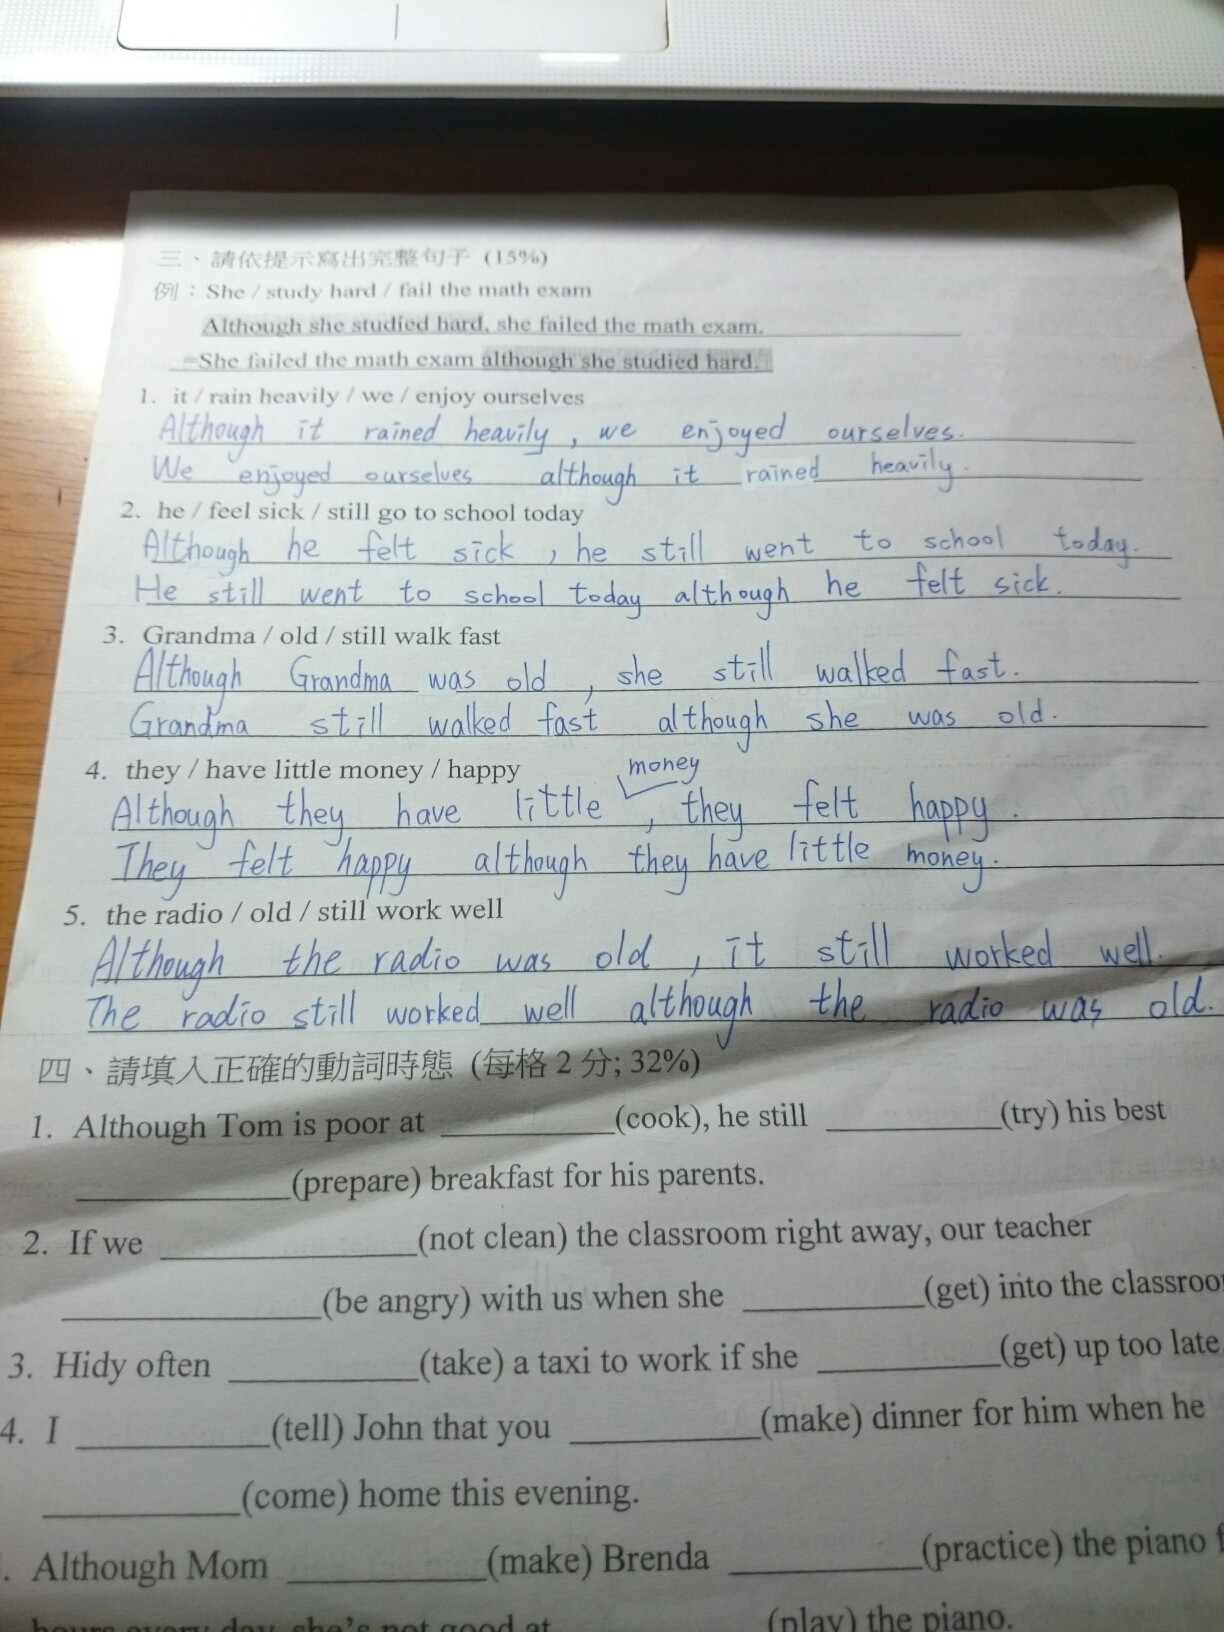 三、請依提示寫出完整句子 (15%)
例：She / study hard / fail the math exam
Although she studied hard, she failed the math exam.
=She failed the math exam although she studied hard.
1. it / rain heavily / we / enjoy ourselves
Although it rained heavily, we enjoyed ourselves.
We enjoyed ourselves although it rained heavily.
2. he / feel sick / still go to school today
Although he felt sick, he still went to school today.
He still went to school today although he felt sick.
3. Grandma / old / still walk fast
Although Grandma was old, she still walked fast.
Grandma still walked fast although she was old.
4. they / have little money / happy
Although they have little money, they felt happy.
They felt happy although they have little money.
5. the radio / old / still work well
Although the radio was old, it still worked well.
The radio still worked well although the radio was old.
四、請填入正確的動詞時態 (每格 2 分; 32%)
1. Although Tom is poor at ________(cook), he still ________(try) his best
________(prepare) breakfast for his parents.
2. If we ________(not clean) the classroom right away, our teacher
________(be angry) with us when she ________(get) into the classroo
3. Hidy often ________(take) a taxi to work if she ________(get) up too late
4. I ________(tell) John that you ________(make) dinner for him when he
________(come) home this evening.
. Although Mom ________(make) Brenda ________(practice) the piano f
hours every day, she's not good at ________(play) the piano.